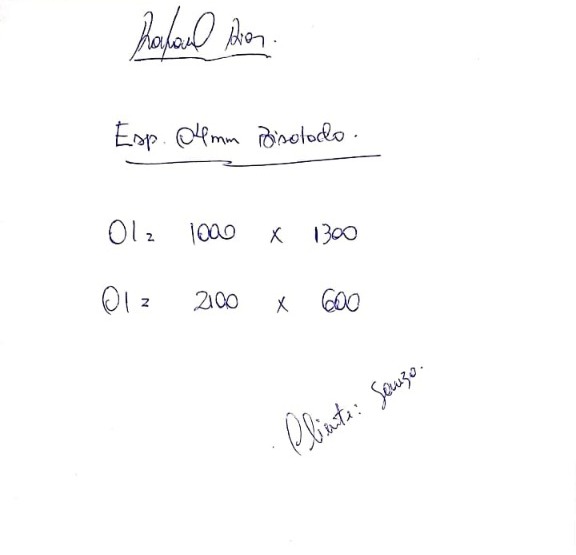 Rafael Dias.
Esp. 04mm Bisotado.
01 = 1000 x 1300
01 = 2100 x 600
Cliente: Souza.